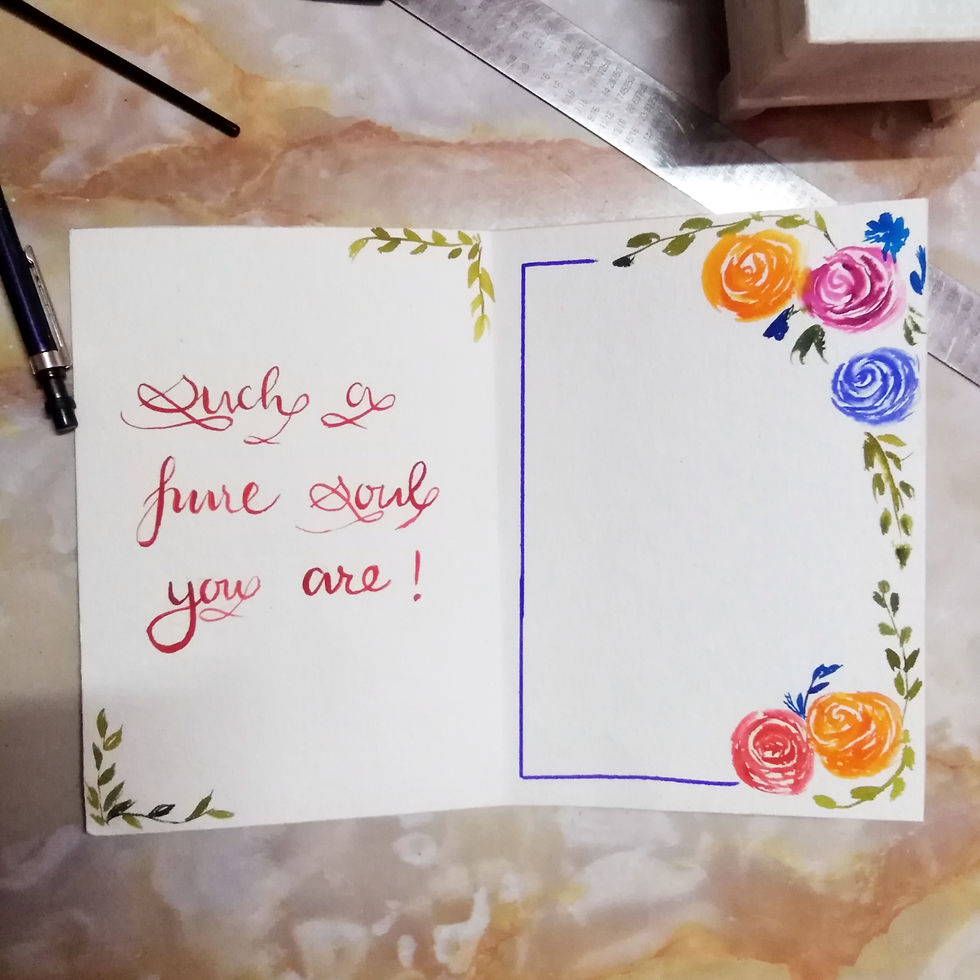 Such a
pure soul
you are !